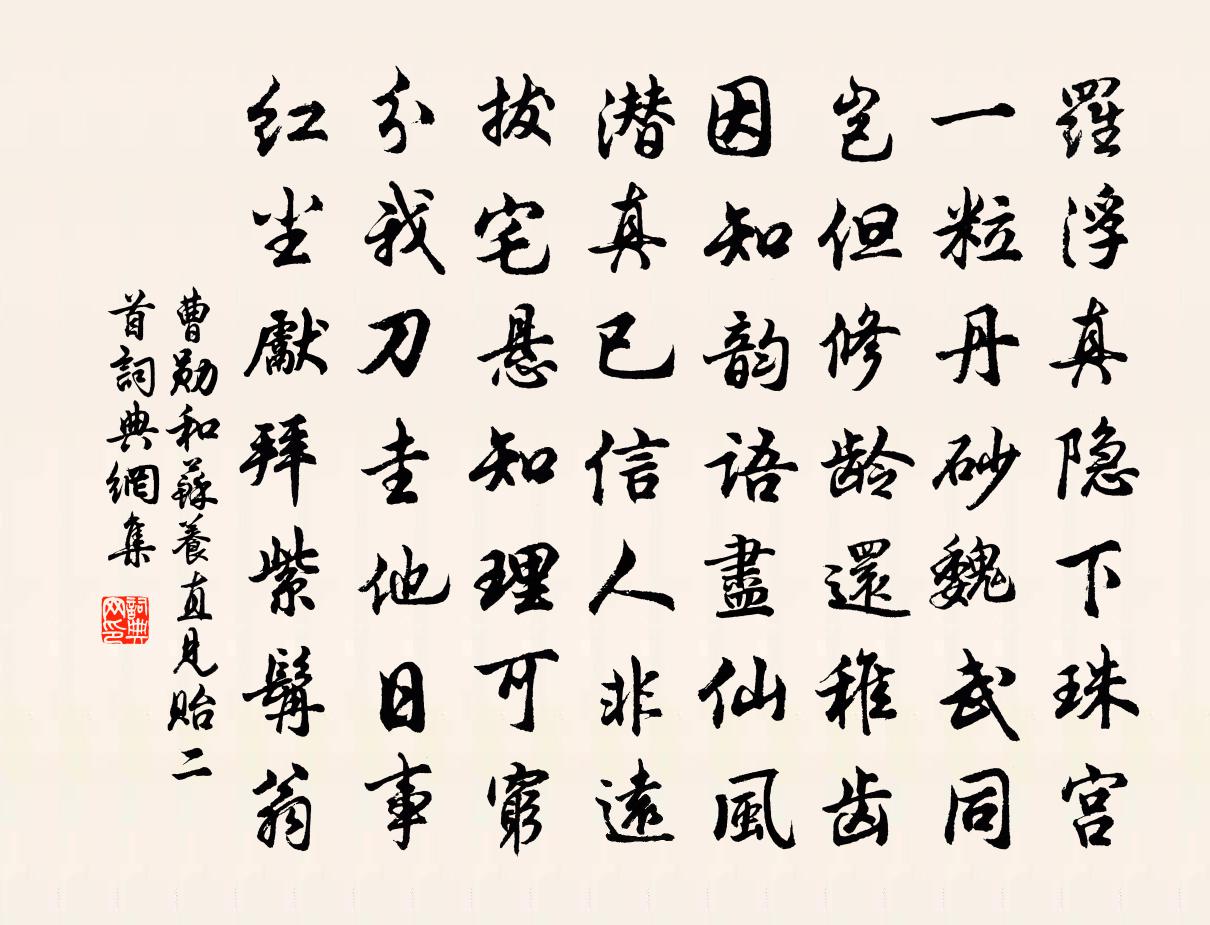 羅浮真隐下珠宮
一粒丹砂魏武同
岂但修龄還稚齿
因知韵语盡仙風
潜真已信人非遠
拔宅悬知理可窮
分我刀圭他日事
红尘獻拜紫髯翁
曹勋和蘇養直見貽二
首詞典網集
詞典
网印